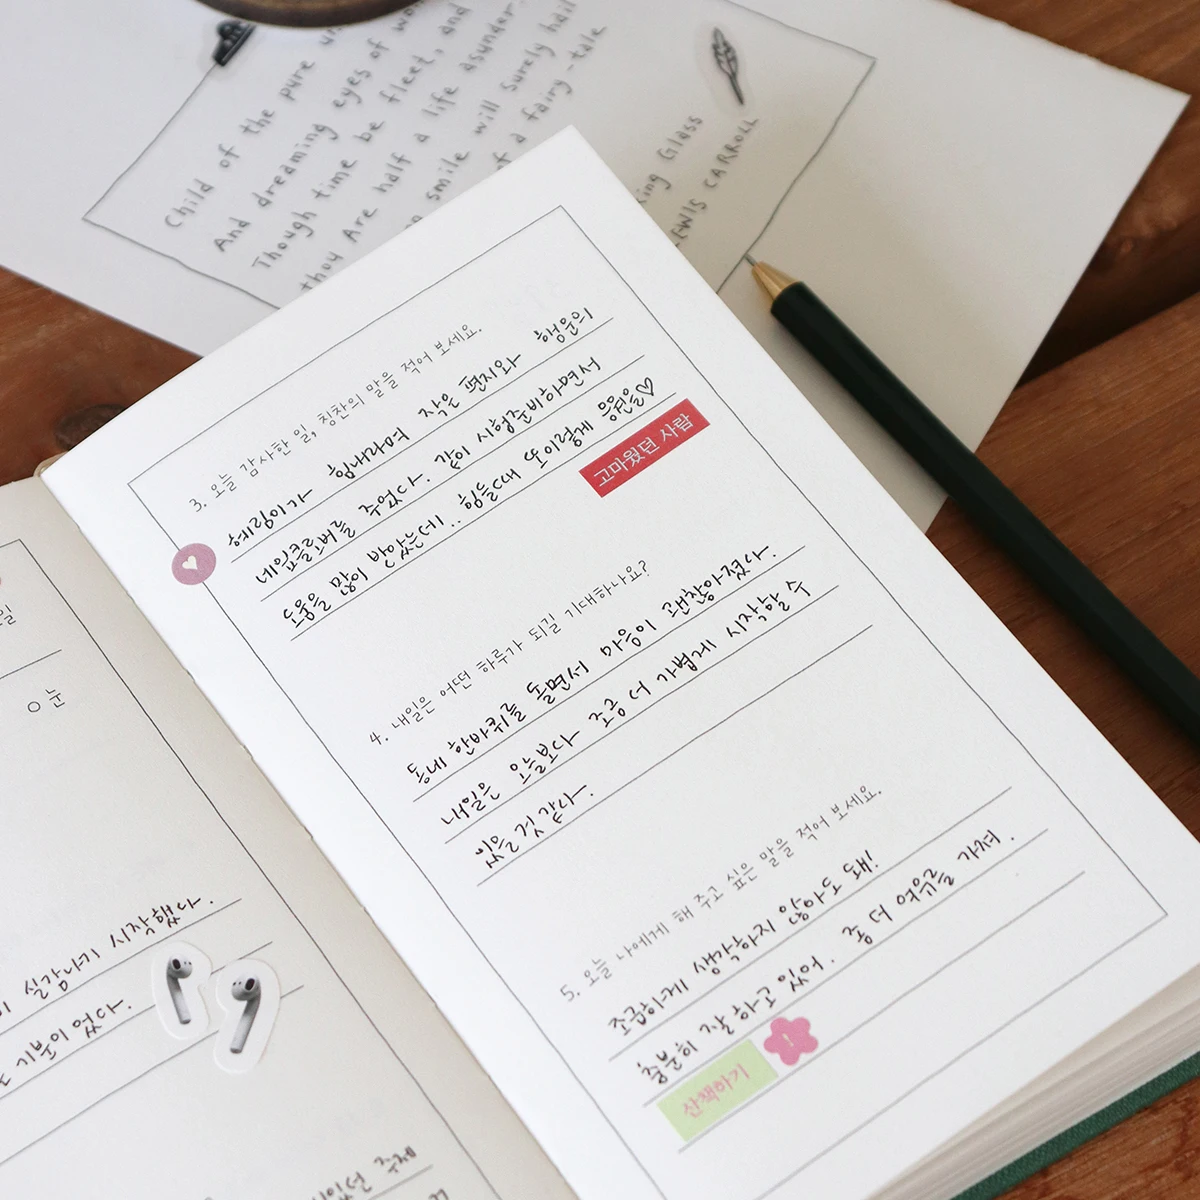 Child of the pure un
And dreaming eyes of wo
Though time be fleet, and
thou Are half a life asunder,
smile will surely hail
of a fairy-tale
king Glass
LEWIS CARROLL
3. 오늘 감사한 일, 칭찬의 말을 적어 보세요.
혜림이가 힘내라며 작은 편지와 행운의
네잎클로버를 주었다. 같이 시험준비하면서
도움을 많이 받았는데.. 힘들때 또 이렇게 응원을♡
고마웠던 사람
4. 내일은 어떤 하루가 되길 기대하나요?
동네 한바퀴를 돌면서 마음이 괜찮아졌다.
내일은 오늘보다 조금 더 가볍게 시작할 수
있을 것 같다.
5. 오늘 나에게 해 주고 싶은 말을 적어 보세요.
조급하게 생각하지 않아도 돼!
충분히 잘 하고 있어. 좀 더 여유를 가져.
산책하기
일
눈
실감나기 시작했다.
기분이었다.
주제